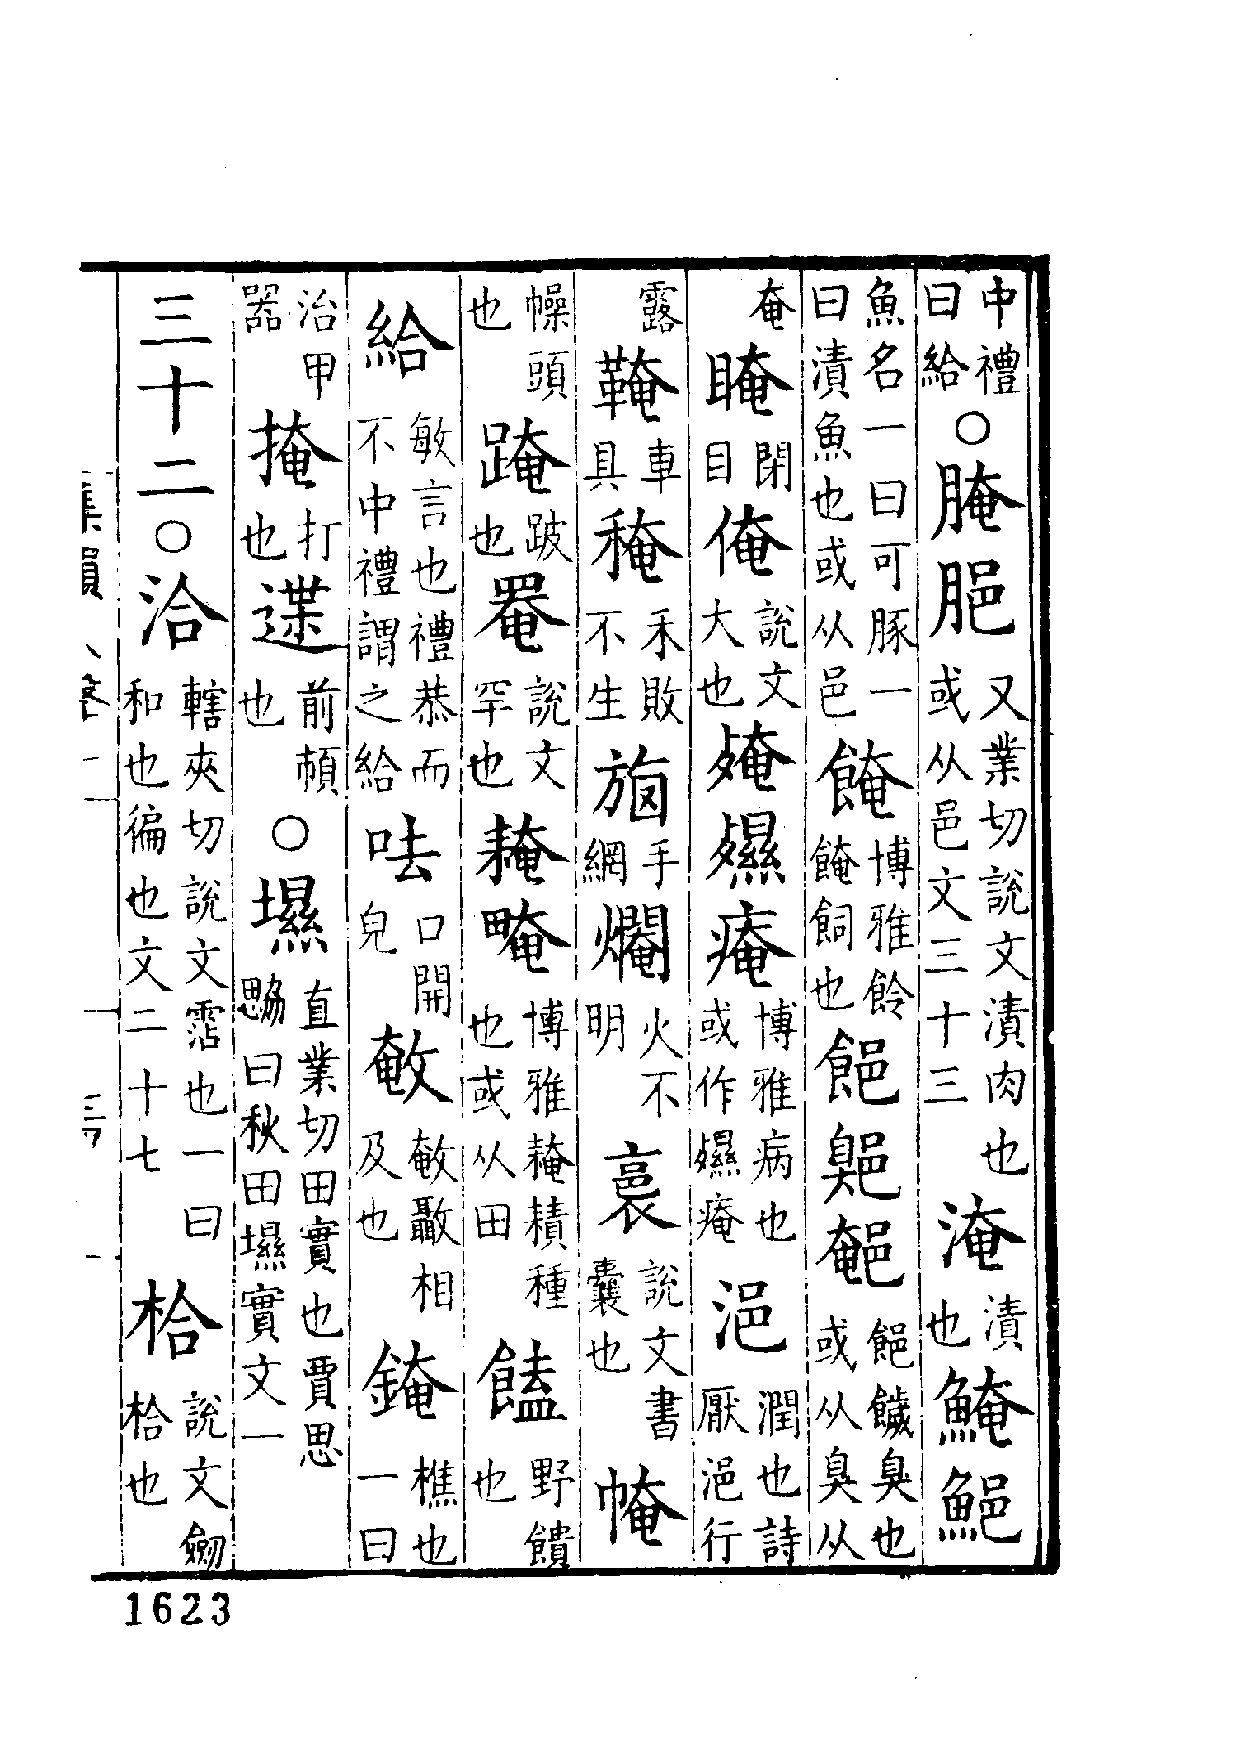 中禮曰給○腌𦛕又業切說文漬肉也或从邑文三十三淹漬也䱋䱒
魚名一曰可豚一曰漬魚也或从邑䭓博雅飵䭓飼也䭂或从臭从
庵䁆閉目俺說文大也殗㱃痷博雅病也或作㱃痷浥潤也詩厭浥行
露鞥車具䅖禾敗不生手網爓火不明裛說文書囊也㡋
幧頭也踠跛也罨說文罕也䎨𤲅博雅䎨種也或从田饁野饋也
給敏言也禮恭而不中禮謂之給呿口開皃敮相及也䤶樵也一曰
治甲器掩打也前頓也○㙷直業切田實也賈思勰曰秋田㙷實文一
三十二○洽轄夾切說文霑也一曰和也徧也文二十七枱說文劒枱也
集韻 卷十
1623